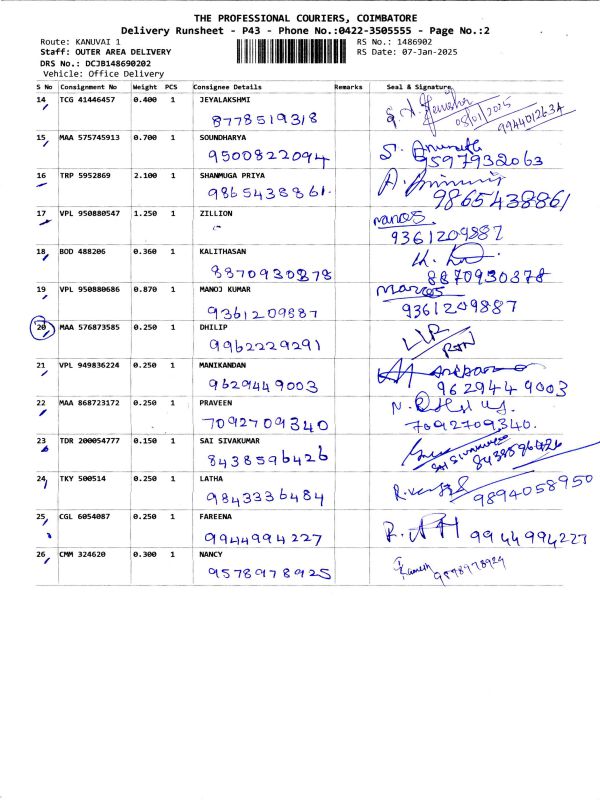 THE PROFESSIONAL COURIERS, COIMBATORE
Delivery Runsheet - P43 - Phone No.:0422-3505555 - Page No.:2
Route: KANUVAI 1 RS No.: 1486902
Staff: OUTER AREA DELIVERY RS Date: 07-Jan-2025
DRS No.: DCJB148690202
Vehicle: Office Delivery
S No Consignment No Weight PCS Consignee Details Remarks Seal & Signature
14 TCG 41446457 0.400 1 JEYALAKSHMI
8778519318 08/01/2025 9944012634
15 MAA 575745913 0.700 1 SOUNDHARYA
9500822094 9597932063
16 TRP 5952869 2.100 1 SHANMUGA PRIYA
9865438861. 9865438861
17 VPL 950880547 1.250 1 ZILLION manos
9361209887
18 BOD 488206 0.360 1 KALITHASAN
8870930878 8870930878
19 VPL 950880686 0.870 1 MANOJ KUMAR manos
9361209887 9361209887
20 MAA 576873585 0.250 1 DHILIP
9962229291 RTN
21 VPL 949836224 0.250 1 MANIKANDAN
9629449003 9629449003
22 MAA 868723172 0.250 1 PRAVEEN
7092709340 7092709340.
23 TDR 200054777 0.150 1 SAI SIVAKUMAR
8438596426 SAI SIVAKUMAR 8438596426
24 TKY 500514 0.250 1 LATHA
9843336484 9894058950
25 CGL 6054087 0.250 1 FAREENA
9944994227 9944994227
26 CMM 324620 0.300 1 NANCY
9578978925 Ramesh